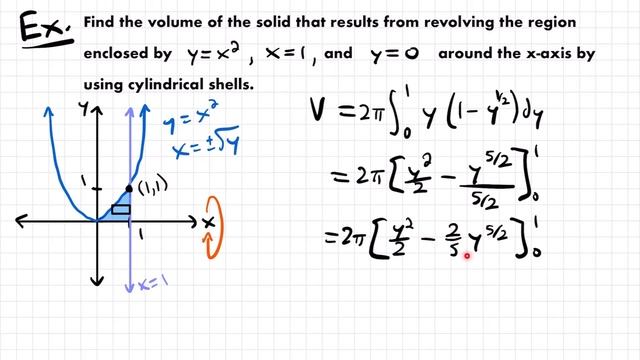 Ex. Find the volume of the solid that results from revolving the region
enclosed by y = x², x = 1, and y = 0 around the x-axis by
using cylindrical shells.
y
y = x²
x = ±√y
1
(1,1)
x
1
x = 1
V = 2π ∫₀¹ y (1 − y^{1/2}) dy
= 2π [ y²/2 − y^{5/2}/(5/2) ]₀¹
= 2π [ y²/2 − 2/5 y^{5/2} ]₀¹